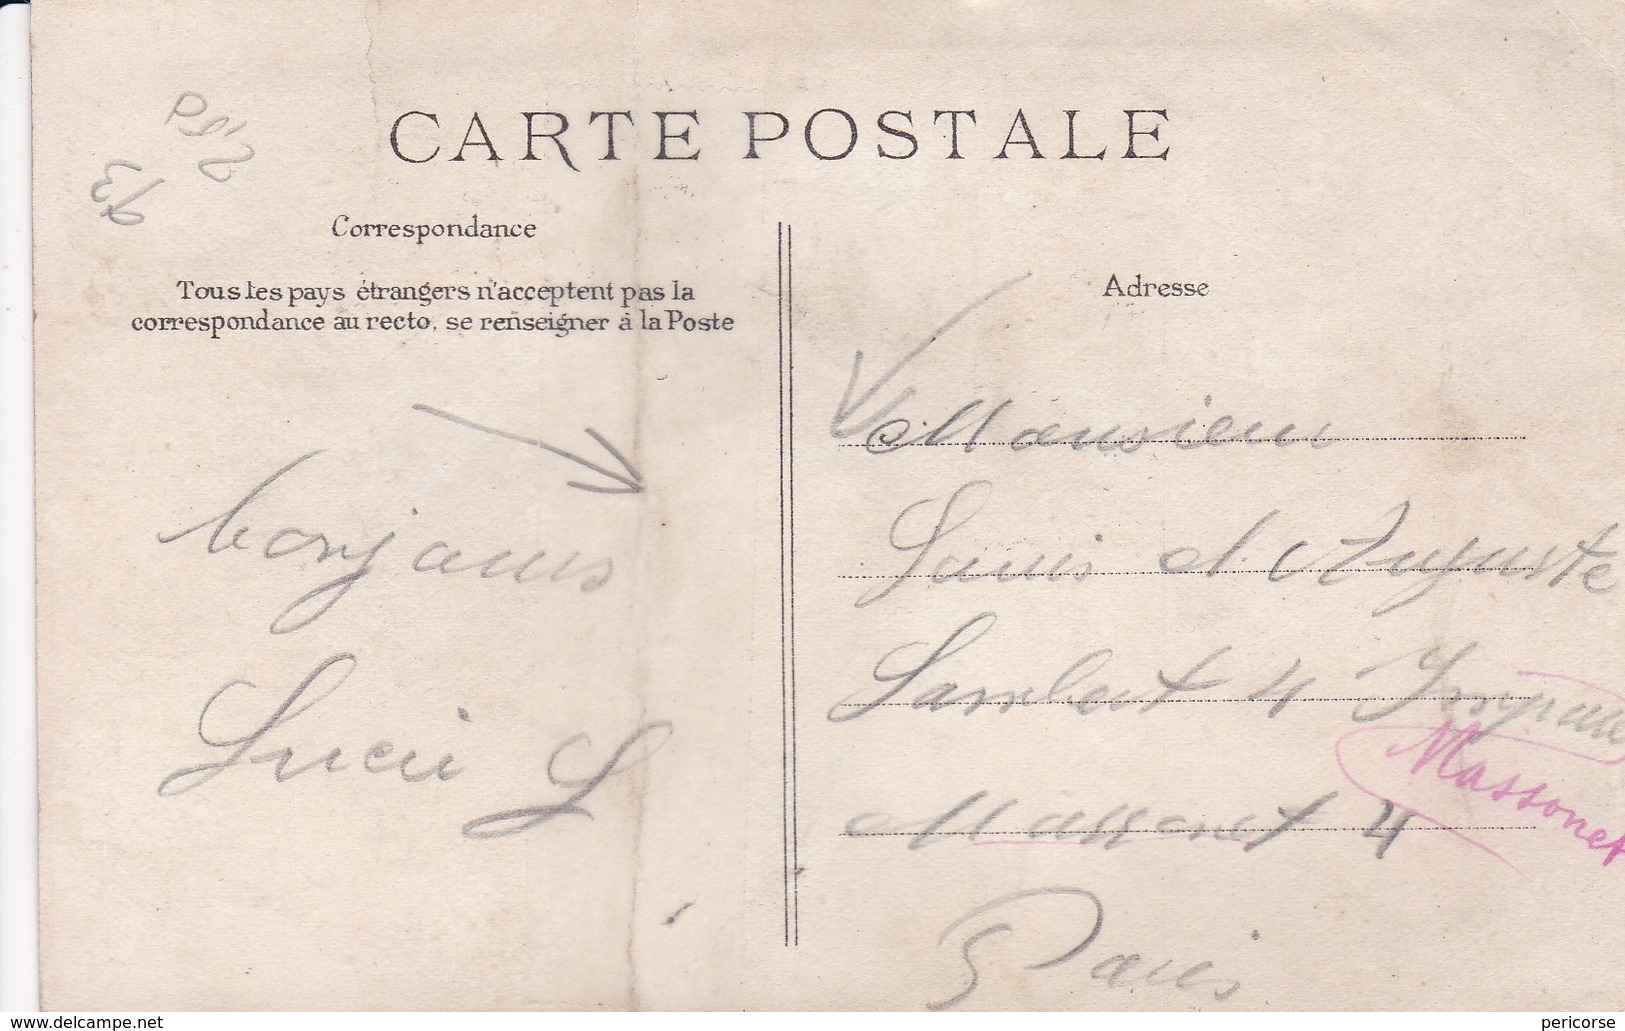 CARTE POSTALE
Correspondance
Tous les pays étrangers n'acceptent pas la
correspondance au recto, se renseigner à la Poste
bonjours
Lucii L
Adresse
Monsieur
Louis et Auguste
Lambert 4 Impasse
Massonet
Massonet 4
Paris
www.delcampe.net
pericorse